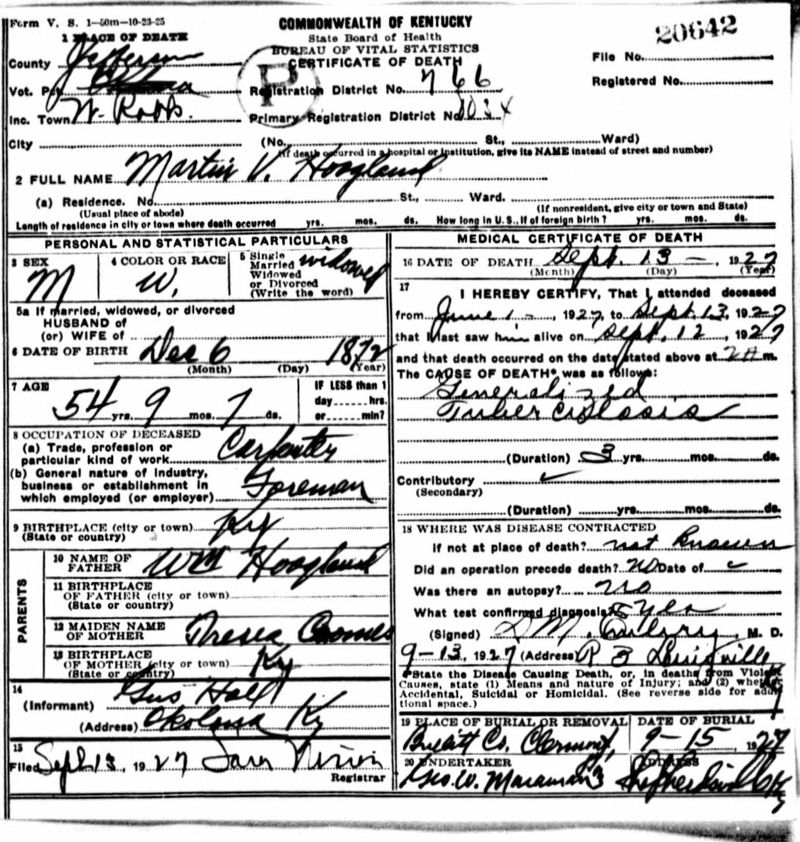 Form V. S. 1—50m—10-23-25
COMMONWEALTH OF KENTUCKY
State Board of Health
BUREAU OF VITAL STATISTICS
CERTIFICATE OF DEATH
20642
1 PLACE OF DEATH
County Jefferson
File No.
Vot. Pct
Registration District No. 766
Registered No.
Inc. Town W. Robb.
Primary Registration District No. 1034
P
City (No. St., Ward)
(If death occurred in a hospital or institution, give its NAME instead of street and number)
2 FULL NAME Martin V. Hoagland
(a) Residence. No. St., Ward.
(Usual place of abode) (If nonresident, give city or town and State)
Length of residence in city or town where death occurred yrs. mos. ds. How long in U.S., if of foreign birth? yrs. mos. ds.
PERSONAL AND STATISTICAL PARTICULARS
3 SEX 4 COLOR OR RACE 5 Single Married Widowed or Divorced (Write the word) widowed
M W.
5a If married, widowed, or divorced
HUSBAND of
(or) WIFE of
6 DATE OF BIRTH Dec 6 1872
(Month) (Day) (Year)
7 AGE IF LESS than 1
54 yrs. 9 mos. 7 ds. day hrs. or min?
8 OCCUPATION OF DECEASED
(a) Trade, profession or
particular kind of work Carpenter
(b) General nature of Industry,
business or establishment in
which employed (or employer) Foreman
9 BIRTHPLACE (city or town) Ky
(State or country)
PARENTS
10 NAME OF
FATHER Wm Hoagland
11 BIRTHPLACE
OF FATHER (city or town)
(State or country)
12 MAIDEN NAME
OF MOTHER
13 BIRTHPLACE
OF MOTHER (city or town) Ky
(State or country)
14
(Informant) Gus Hall
(Address) Okolona Ky
15
Filed Sept 13, 1927
Registrar
MEDICAL CERTIFICATE OF DEATH
16 DATE OF DEATH Sept. 13 — , 1927
(Month) (Day) (Year)
17
I HEREBY CERTIFY, That I attended deceased
from June 1 - , 1927 to Sept. 13, 1927
that I last saw him alive on Sept. 12, 1927
and that death occurred on the date stated above at m.
The CAUSE OF DEATH* was as follows:
Generalized
Tuberculosis
(Duration) 3 yrs. mos. ds.
Contributory
(Secondary)
(Duration) yrs. mos. ds.
18 WHERE WAS DISEASE CONTRACTED
If not at place of death? not known
Did an operation precede death? No Date of
Was there an autopsy? No
What test confirmed diagnosis? Yes
(Signed) M. D.
9-13, 1927 (Address) R 3 Louisville Ky
*State the Disease Causing Death, or, in deaths from Violent
Causes, state (1) Means and nature of Injury; and (2) whether
Accidental, Suicidal or Homicidal. (See reverse side for addi-
tional space.)
19 PLACE OF BURIAL OR REMOVAL DATE OF BURIAL
Bullitt Co. Clermont, 9-15 1927
20 UNDERTAKER ADDRESS
Geo. W. Maraman Shepherdsville Ky